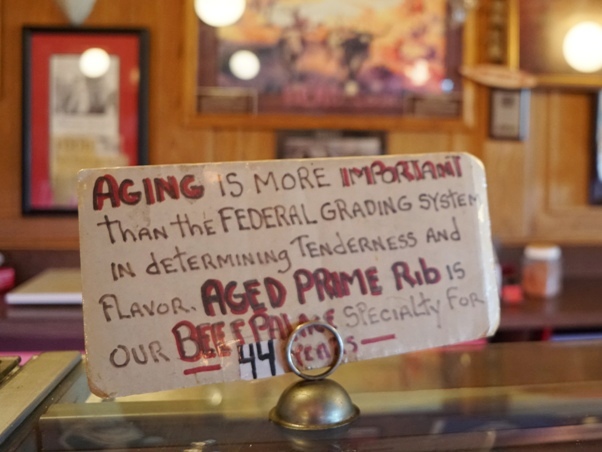 AGING IS MORE IMPORTANT
THAN the FEDERAL GRADING SYSTEM
IN deTERMINING TENDERNESS AND
FLAVOR. AGED PRIME Rib IS
OUR BEEF PALACE SPECIALTY FOR
44 YEARS